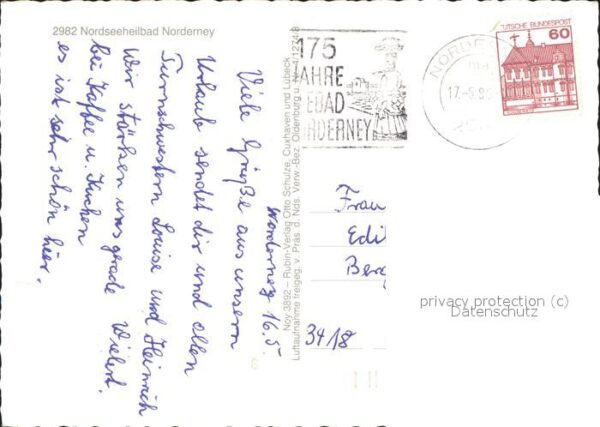 2982 Nordseeheilbad Norderney
Norderney 16.5.
Viele Grüße aus unserm
Urlaub sendet dir und allen
Turnschwestern Louise und Heinrich
Wir stärken uns gerade
bei Kaffe u. Kuchen
es ist sehr schön hier.
Noy 3892 – Rubin-Verlag Otto Schulze, Cuxhaven und Lübeck
Luftaufnahme freigeg. v. Präs. d. Nds. Verw.-Bez. Oldenburg u.
175
JAHRE
EBAD
RDERNEY
NORDE
17.-5.
UTSCHE BUNDESPOST
60
Frau
Edi
Berg
3418
privacy protection (c)
Datenschutz